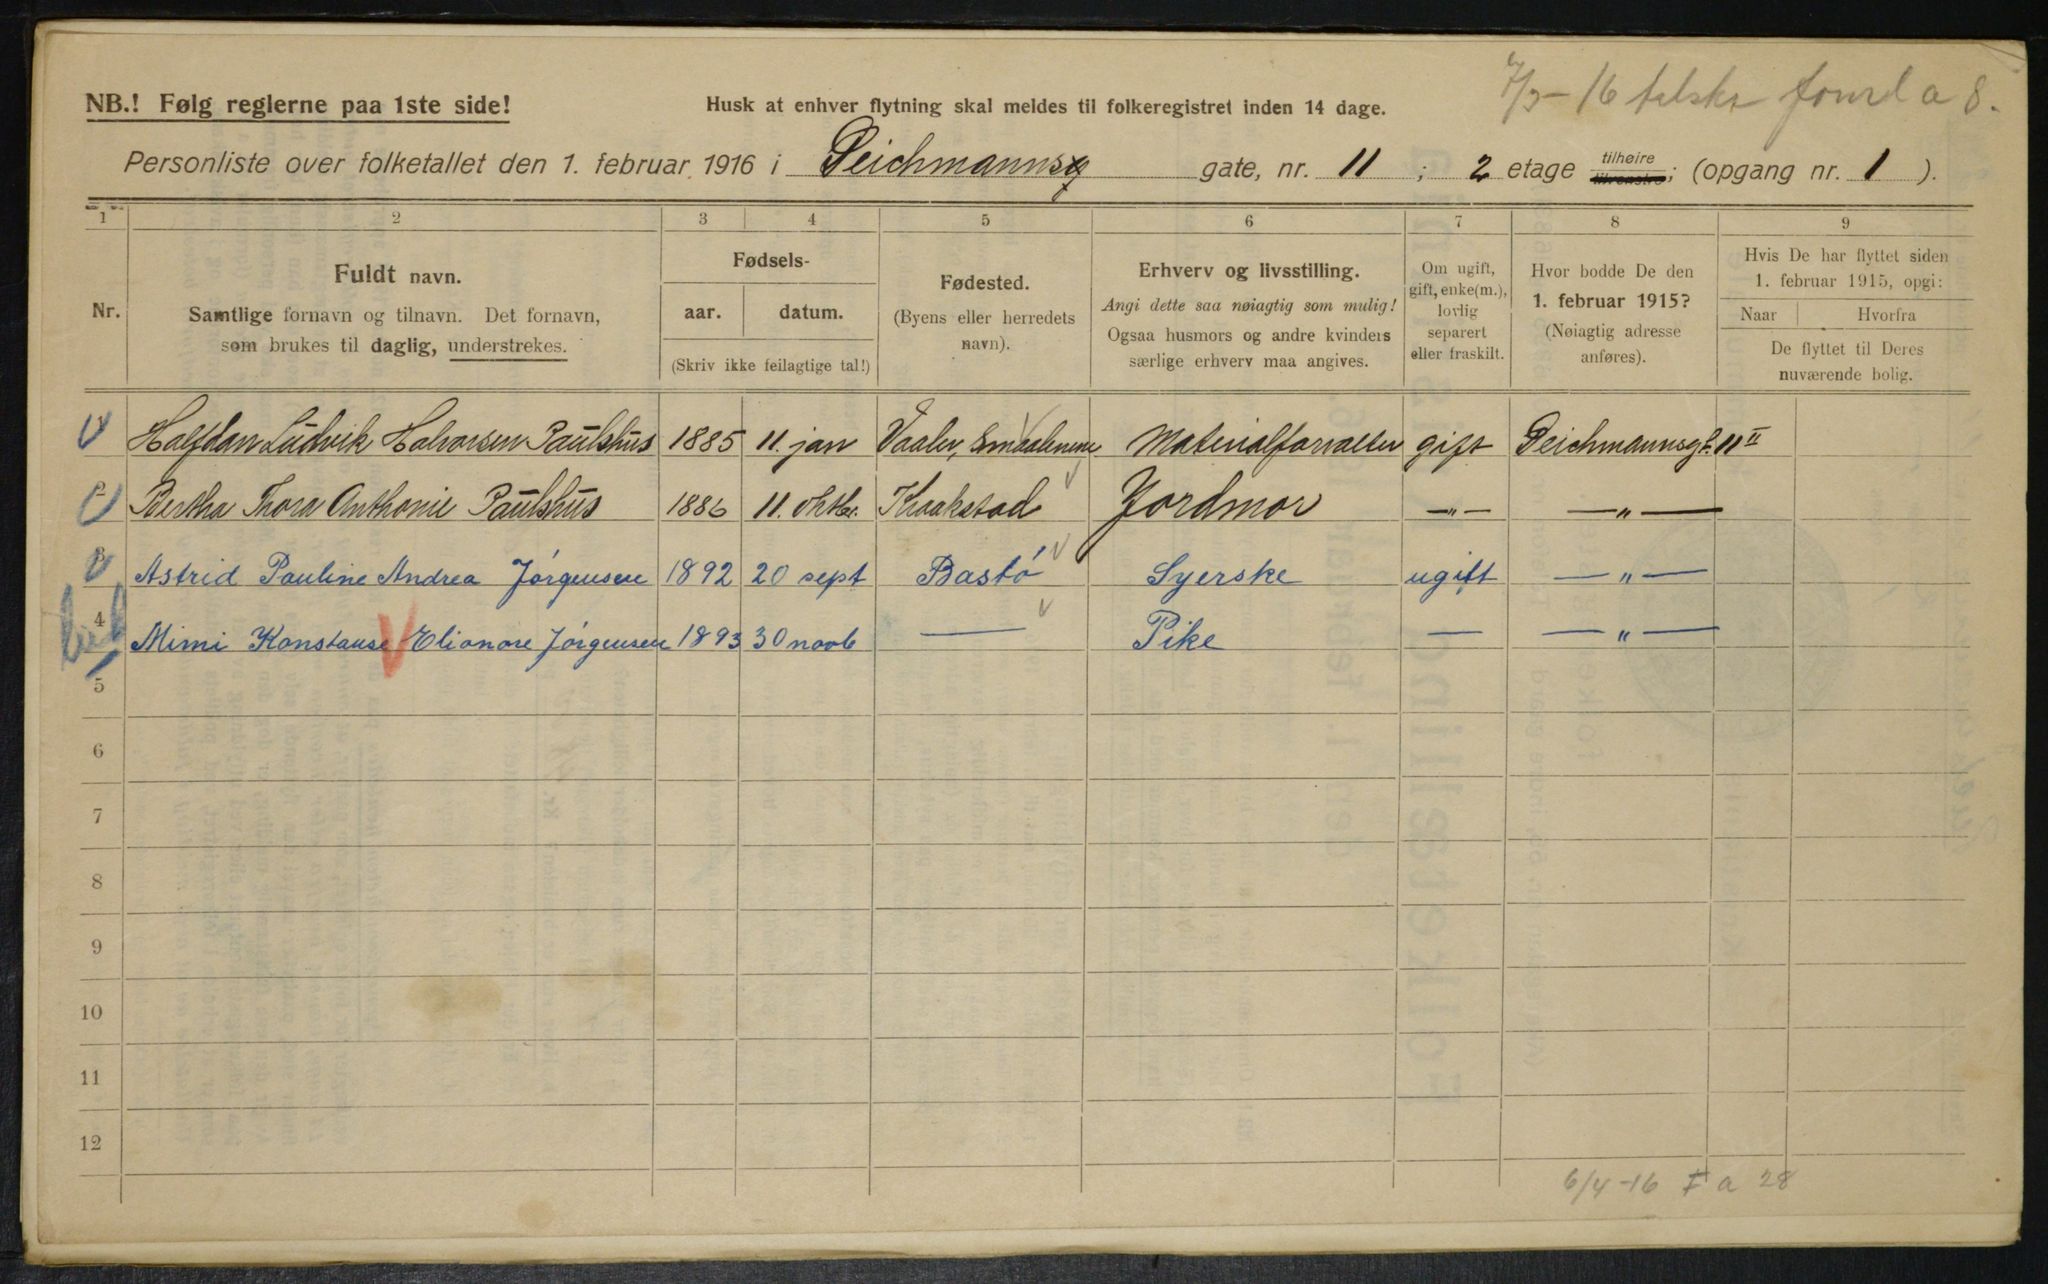 7/3-16 falske fond a 8.
NB.! Følg reglerne paa 1ste side!
Husk at enhver flytning skal meldes til folkeregistret inden 14 dage.
Personliste over folketallet den 1. februar 1916 i Deichmannsg gate, nr. 11 ; 2 etage tilhøire tilvenstre; (opgang nr. 1 ).
1 2 3 4 5 6 7 8 9
Nr.
Fuldt navn.
Samtlige fornavn og tilnavn. Det fornavn,
som brukes til daglig, understrekes.
Fødsels-
aar. datum.
(Skriv ikke feilagtige tal!)
Fødested.
(Byens eller herredets
navn).
Erhverv og livsstilling.
Angi dette saa nøiagtig som mulig!
Ogsaa husmors og andre kvinders
særlige erhverv maa angives.
Om ugift,
gift, enke(m.),
lovlig
separert
eller fraskilt.
Hvor bodde De den
1. februar 1915?
(Nøiagtig adresse
anføres).
Hvis De har flyttet siden
1. februar 1915, opgi:
Naar Hvorfra
De flyttet til Deres
nuværende bolig.
1 Halfdan Ludvik Halvorsen Paulshus 1885 11. jan Vaaler, Smaalenene Materialforvalter gift Deichmannsgt. 11 II
2 Bertha Thora Anthonie Paulshus 1886 11. oktbr. Kraakstad Jordmor —"— —"—
3 Astrid Pauline Andrea Jórgensen 1892 20 sept Bastó Syerske ugift —"—
4 Mimi Konstanse Elionore Jórgensen 1893 30 novb — Pike — —"—
5
6
7
8
9
10
11
12
6/4-16 F a 28